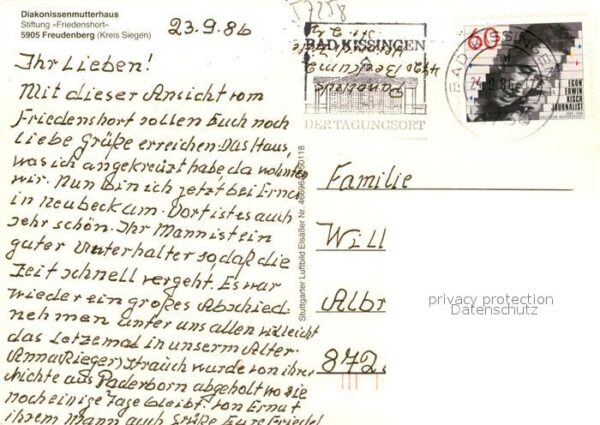 Diakonissenmutterhaus
Stiftung »Friedenshort«
5905 Freudenberg (Kreis Siegen)
23.9.86
Ihr Lieben!
Mit dieser Ansicht vom
Friedenshort sollen Euch noch
liebe Grüße erreichen. Das Haus,
was ich angekreuzt habe da wohnten
wir. Nun bin ich jetzt bei Erna
in Neubeckum. Dort ist es auch
sehr schön. Ihr Mann ist ein
guter Unterhalter, so daß die
Zeit schnell vergeht. Es war
wieder ein großes Abschied-
nehmen unter uns allen vielleicht
das Letzemal in unserm Alter.
Anna (Rieger) Strauch wurde von ihrer
Nichte aus Paderborn abgeholt wo sie
noch einige Tage bleibt. Von Erna u.
ihrem Mann auch Grüße Eure Friedel
Stuttgarter Luftbild Elsäßer Nr.
BAD KISSINGEN
DER TAGUNGSORT
4720 Beckum 2
BAD KISSINGEN
60
EGON
ERWIN
KISCH
JOURNALIST
Familie
Will
Albr
872
privacy protection
Datenschutz